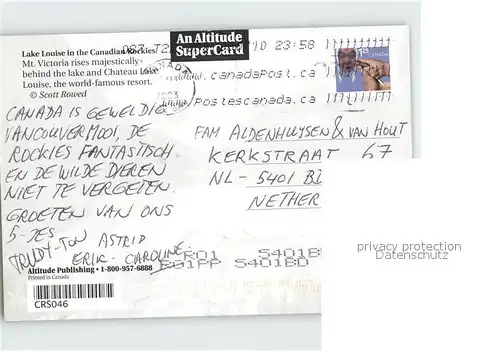 An Altitude
SuperCard
Lake Louise in the Canadian Rockies
Mt. Victoria rises majestically
behind the lake and Chateau Lake
Louise, the world-famous resort.
© Scott Rowed
10 23:58
CANADA
2003
.canadapost.ca
postescanada.ca
1.25
CANADA
CANADA IS GEWELDIG
VANCOUVER MOOI, DE
ROCKIES FANTASTISCH
EN DE WILDE DIEREN
NIET TE VERGETEN.
GROETEN VAN ONS
5-JES
TRUDY-TON ASTRID
ERIK-CAROLINE.
FAM ALDENHUYSEN & VAN HOUT
KERKSTRAAT 67
NL-5401 B
NETHER
privacy protection
Datenschutz
R01 5401B
R01PP 5401BD
Altitude Publishing • 1-800-957-6888
Printed in Canada
CRS046